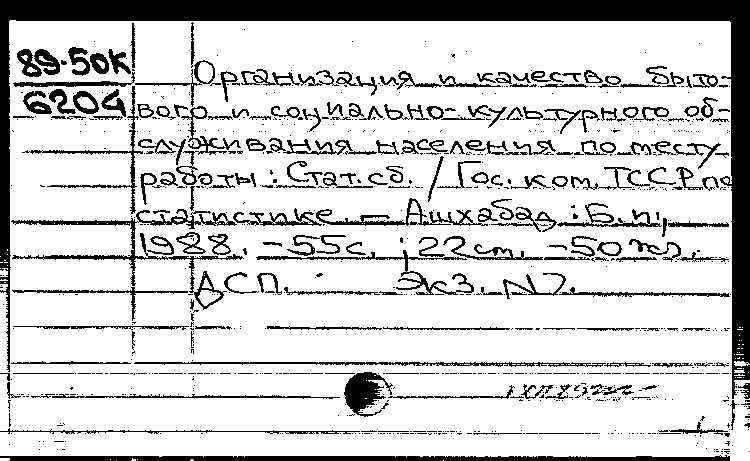 89-50К
6204
Организация и качество быто-
вого и социально-культурного об-
служивания населения по месту
работы : Стат. сб. / Гос. ком. ТССР по
статистике. — Ашхабад : Б.и.,
1988. - 55 с. ; 22 см. - 50 экз.
ДСП. Экз. N7.